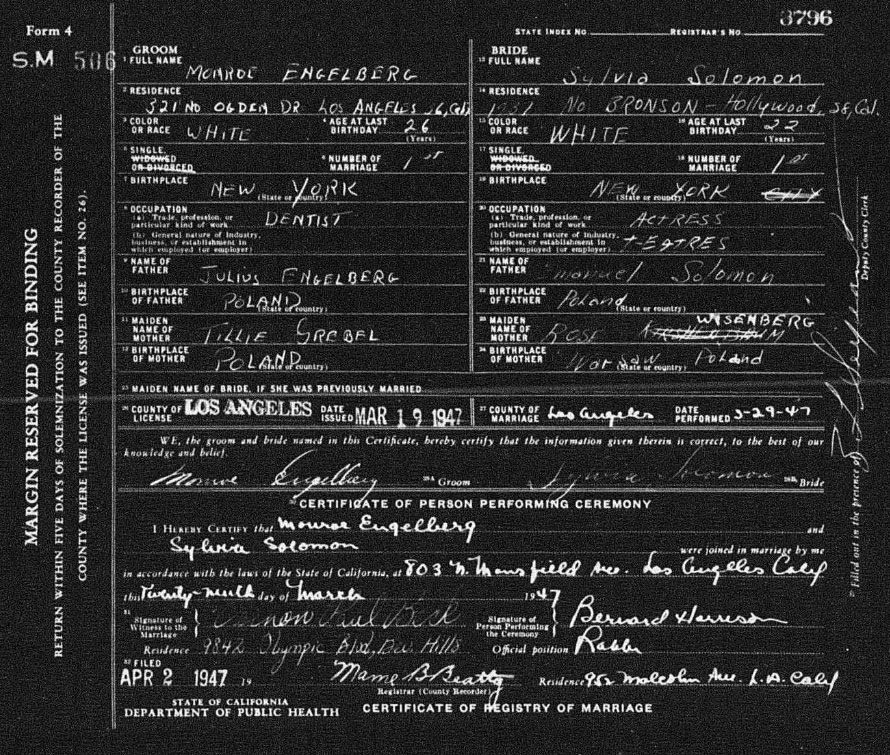 3796
Form 4
STATE INDEX NO. REGISTRAR'S NO.
S.M 506
GROOM
1 FULL NAME MONROE ENGELBERG
2 RESIDENCE 321 NO OGDEN DR LOS ANGELES 36, Cal
3 COLOR OR RACE WHITE 4 AGE AT LAST BIRTHDAY 26 (Years)
5 SINGLE, WIDOWED OR DIVORCED 6 NUMBER OF MARRIAGE 1ST
7 BIRTHPLACE NEW YORK (State or country)
8 OCCUPATION
(a) Trade, profession, or particular kind of work DENTIST
(b) General nature of industry, business, or establishment in which employed (or employer)
9 NAME OF FATHER JULIUS ENGELBERG
10 BIRTHPLACE OF FATHER POLAND (State or country)
11 MAIDEN NAME OF MOTHER TILLIE GREBEL
12 BIRTHPLACE OF MOTHER POLAND (State or country)
BRIDE
13 FULL NAME Sylvia Solomon
14 RESIDENCE NO BRONSON - Hollywood, 28, Cal.
15 COLOR OR RACE WHITE 16 AGE AT LAST BIRTHDAY 22 (Years)
17 SINGLE, WIDOWED OR DIVORCED 18 NUMBER OF MARRIAGE 1ST
19 BIRTHPLACE NEW YORK CITY (State or country)
20 OCCUPATION
(a) Trade, profession, or particular kind of work ACTRESS
(b) General nature of industry, business, or establishment in which employed (or employer)
21 NAME OF FATHER manuel Solomon
22 BIRTHPLACE OF FATHER Poland (State or country)
23 MAIDEN NAME OF MOTHER ROSE WISENBERG
24 BIRTHPLACE OF MOTHER Warsaw Poland (State or country)
25 MAIDEN NAME OF BRIDE, IF SHE WAS PREVIOUSLY MARRIED
26 COUNTY OF LICENSE LOS ANGELES DATE ISSUED MAR 19 1947 27 COUNTY OF MARRIAGE Los Angeles DATE PERFORMED 3-29-47
WE, the groom and bride named in this Certificate, hereby certify that the information given therein is correct, to the best of our
knowledge and belief.
Monroe Engelberg 28A Groom Sylvia Solomon 28B Bride
CERTIFICATE OF PERSON PERFORMING CEREMONY
I HEREBY CERTIFY that Monroe Engelberg and
Sylvia Solomon were joined in marriage by me
in accordance with the laws of the State of California, at 803 N. Mansfield Ave. Los Angeles Calif
this Twenty-ninth day of March 1947
31 Signature of Witness to the Marriage
Signature of Person Performing the Ceremony Bernard Harrison
Residence 9842 Olympic Blvd, Bev Hills Official position Rabbi
32 FILED
APR 2 1947 19 Mame B Beatty Residence 952 Malcolm Ave. L.A. Calif
Registrar (County Recorder)
STATE OF CALIFORNIA
DEPARTMENT OF PUBLIC HEALTH CERTIFICATE OF REGISTRY OF MARRIAGE
MARGIN RESERVED FOR BINDING
RETURN WITHIN FIVE DAYS OF SOLEMNIZATION TO THE COUNTY RECORDER OF THE
COUNTY WHERE THE LICENSE WAS ISSUED (SEE ITEM NO. 26).
Filled out in the presence of
Deputy County Clerk